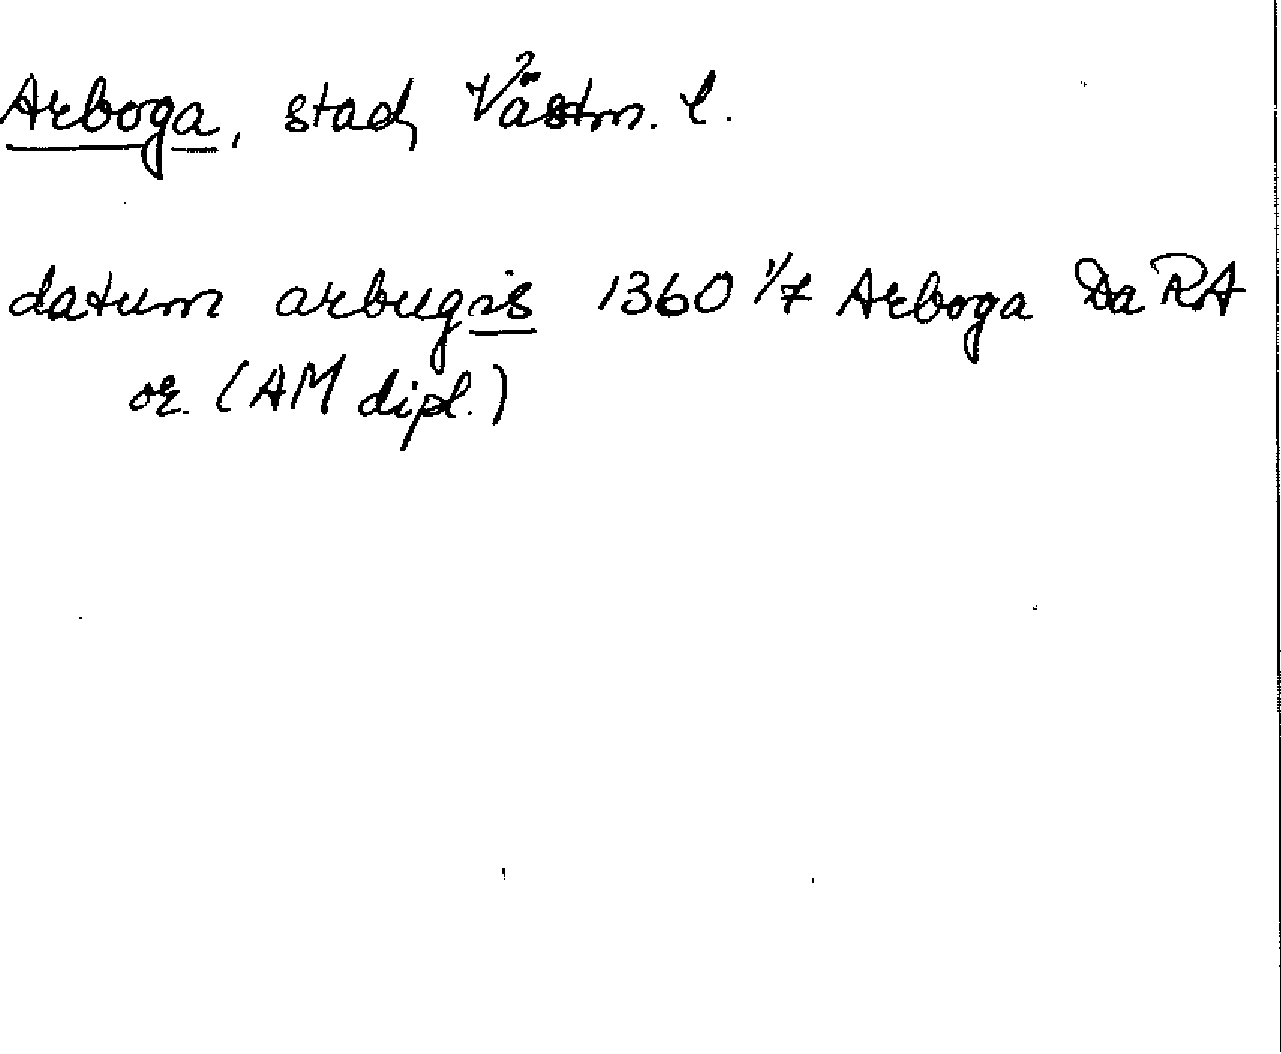 Arboga, stad, Västm. l.
datum arbugis 1360 1/7 Arboga Da RA
or. (AM dipl.)